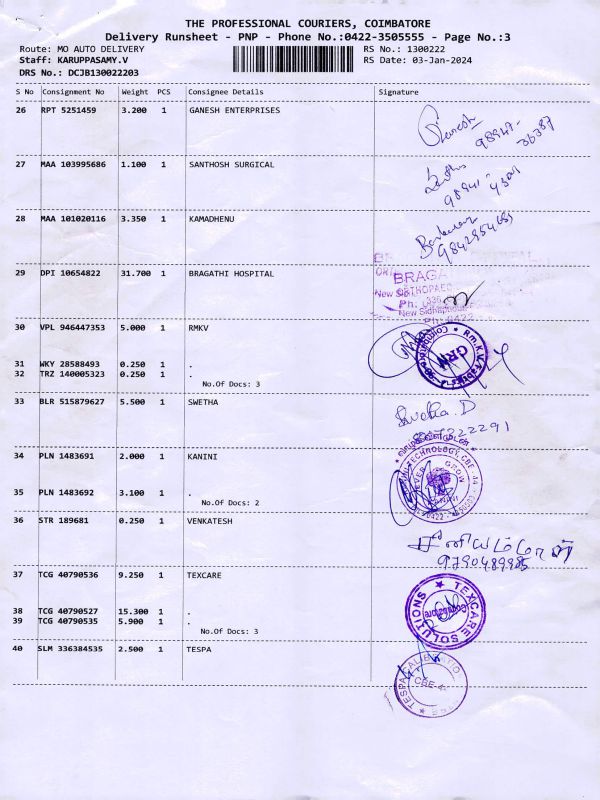 THE PROFESSIONAL COURIERS, COIMBATORE
Delivery Runsheet - PNP - Phone No.:0422-3505555 - Page No.:3
Route: MO AUTO DELIVERY RS No.: 1300222
Staff: KARUPPASAMY.V RS Date: 03-Jan-2024
DRS No.: DCJB130022203
S No Consignment No Weight PCS Consignee Details Signature
26 RPT 5251459 3.200 1 GANESH ENTERPRISES
98947-
36387
27 MAA 103995686 1.100 1 SANTHOSH SURGICAL
28 MAA 101020116 3.350 1 KAMADHENU
29 DPI 10654822 31.700 1 BRAGATHI HOSPITAL
BRAGA
ORTHOPAEC
New Sidhapudur
Ph. 0422
30 VPL 946447353 5.000 1 RMKV
GRN
31 WKY 28588493 0.250 1 .
32 TRZ 140005323 0.250 1 .
No.Of Docs: 3
33 BLR 515879627 5.500 1 SWETHA
Swetha. D
34 PLN 1483691 2.000 1 KANINI
TECHNOLOGY, CBE-44
35 PLN 1483692 3.100 1 .
No.Of Docs: 2
36 STR 189681 0.250 1 VENKATESH
9790489985
37 TCG 40790536 9.250 1 TEXCARE
TEXCARE SOLUTIONS
Coimbatore
38 TCG 40790527 15.300 1 .
39 TCG 40790535 5.900 1 .
No.Of Docs: 3
40 SLM 336384535 2.500 1 TESPA
TESPA
CBE-4